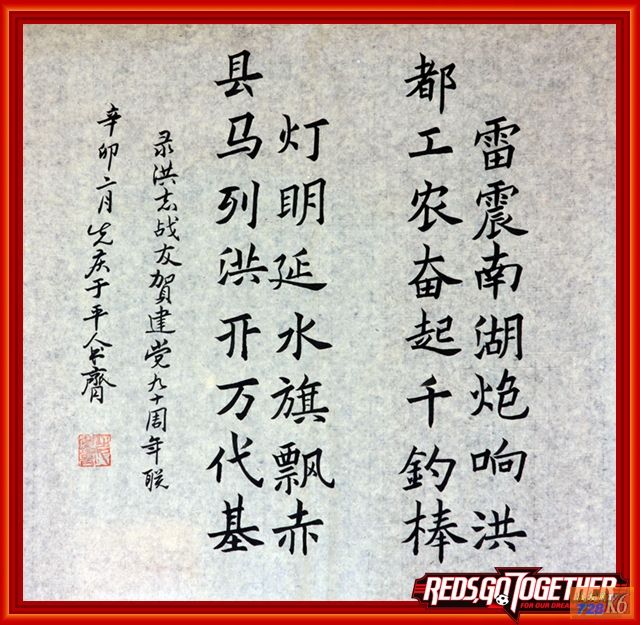 雷震南湖炮响洪
都工农奋起千鈞棒
灯明延水旗飘赤
县马列洪开万代基
录洪志战友賀建党九十周年联
辛卯二月先庆于平
REDS,GO TOGETHER
FOR OUR DREAM
728 K6